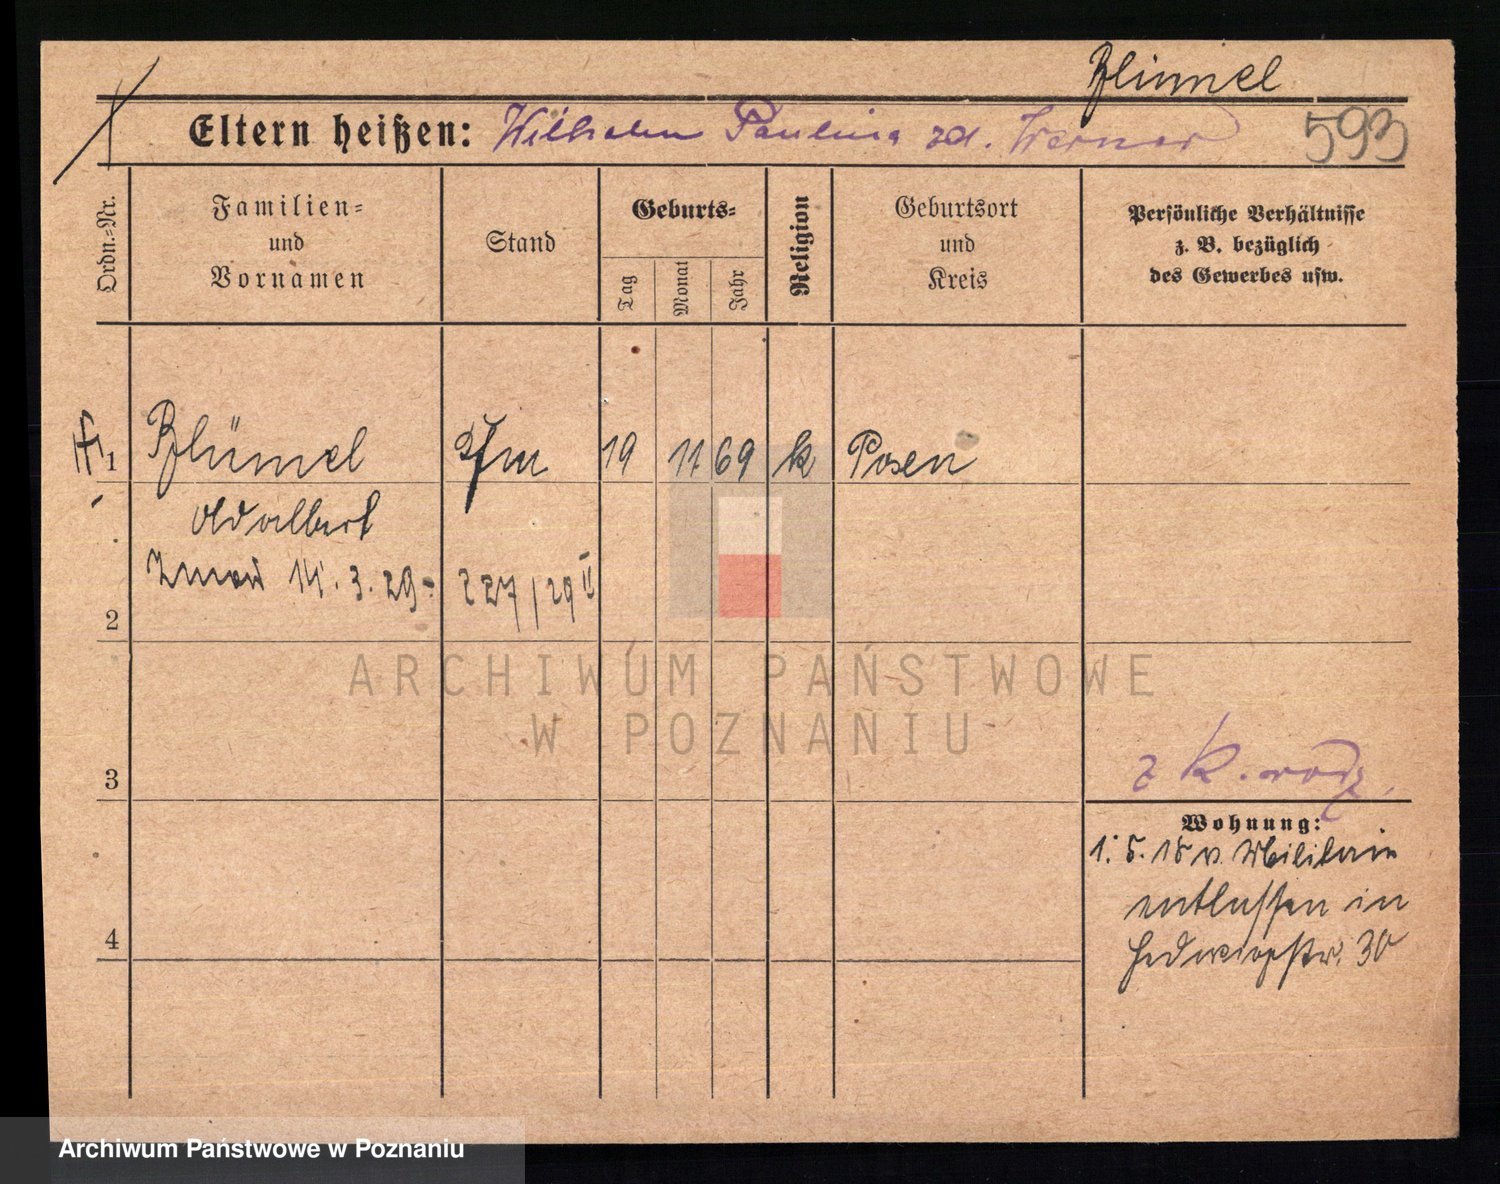 Blümel
Eltern heißen: Wilhelm Paulina zd. Werner 593
Ordn.-Nr.
Familien-
und
Vornamen
Stand
Geburts-
Tag
Monat
Jahr
Religion
Geburtsort
und
Kreis
Persönliche Verhältnisse
z. B. bezüglich
des Gewerbes usw.
1 Blümel Kfm 19 11 69 k Posen
Adalbert
Zmarł 14. 3. 29 - 227/29 II
2
ARCHIWUM PAŃSTWOWE
W POZNANIU
3
z k. rodz.
Wohnung:
1. 5. 15 v. Militär
entlassen in
Hedwigstr. 30
4
Archiwum Państwowe w Poznaniu